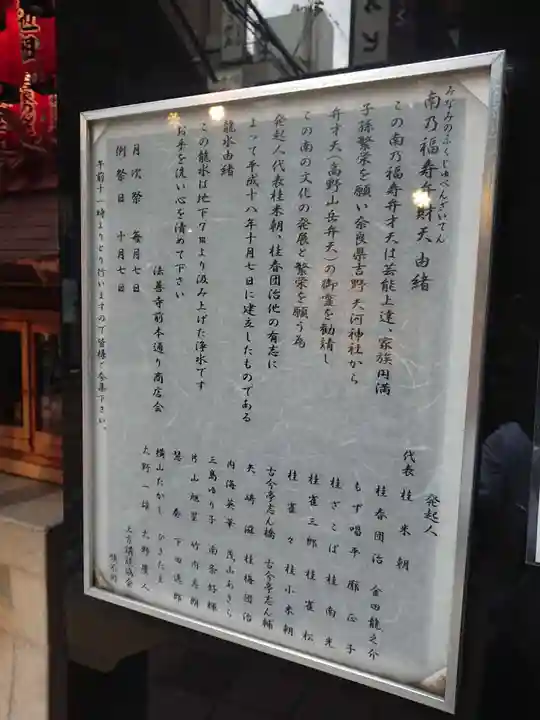 みなみのふくじゅべんざいてん
南乃福寿弁財天 由緒
この南乃福寿弁才天は芸能上達、家族円満
子孫繁栄を願い奈良県吉野 天河神社から
弁才天(高野山岳弁天)の御霊を勧請し
この南の文化の発展と繁栄を願う為
発起人代表桂米朝、桂春団治他の有志に
よって平成十八年十月七日に建立したものである
龍水由緒
この龍水は地下7mより汲み上げた浄水です
お手を洗い心を清めて下さい
法善寺前本通り商店会
月次祭 毎月七日
例祭日 十月七日
午前十一時よりとり行いますので皆様ご参集下さい。
発起人
代表 桂 米朝
桂 春団治 金田龍之介
もず唱平 廓 正子
桂 ざこば 桂 南光
桂 雀三郎 桂 雀松
桂 雀々 桂 小米朝
古今亭志ん橋 古今亭志ん輔
矢崎 滋 桂 梅団治
内海英華 茂山あきら
三島ゆり子 南条好輝
片山旭星 竹内志朗
秦 下田逸郎
横山たかし ひろたま
大野一雄 大野慶人
上方講談協会